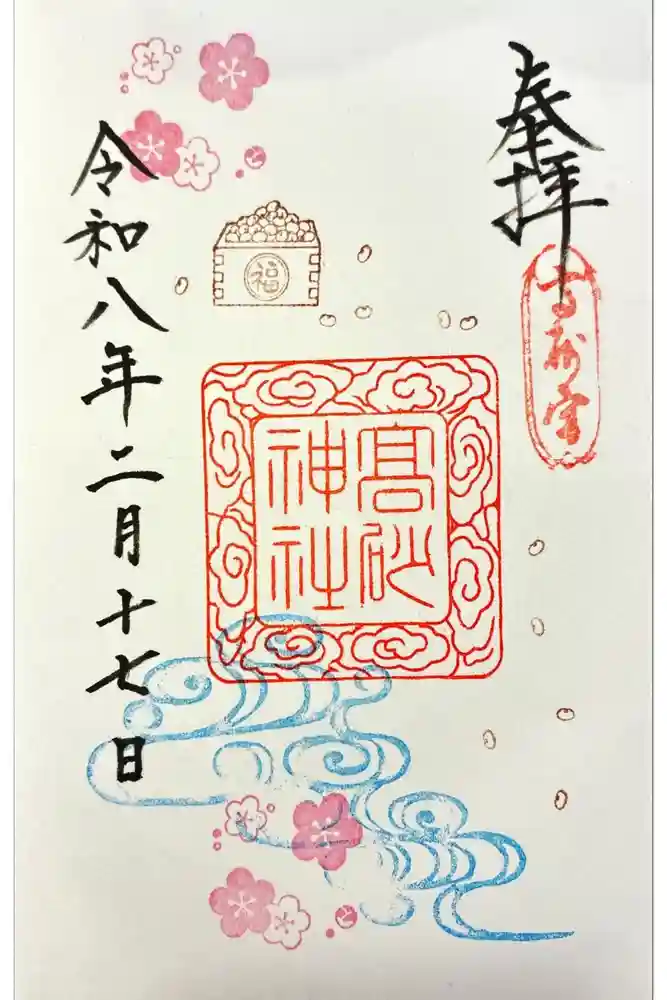 奉拝
髙砂
神社
福
令和八年二月十七日